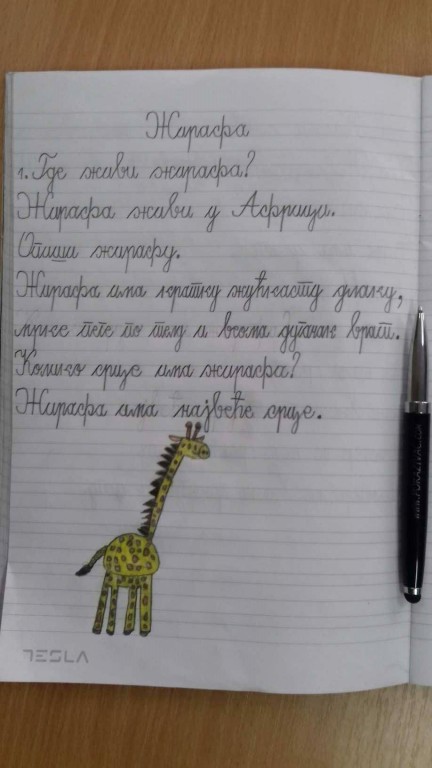 Жирафа
1. Где живи жирафа?
Жирафа живи у Африци.
Опиши жирафу.
Жирафа има кратку жућкасту длаку,
мрке пеге по телу и веома дугачак врат.
Колико срце има жирафа?
Жирафа има највеће срце.
TESLA